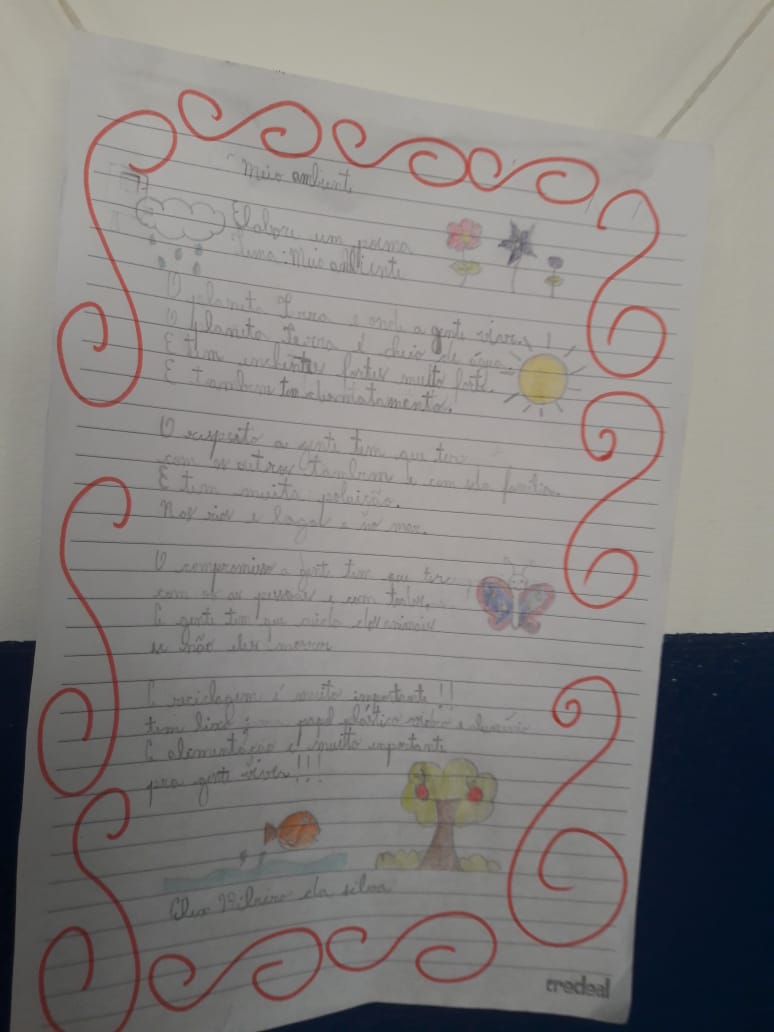 Meio ambiente
Elabore um poema
Tema: Meio ambiente
O planeta Terra é onde a gente vive.
O planeta Terra é cheio de água.
E tem enchentes fortes muito forte.
E tambem tem desmatamento.
O respeito a gente tem que ter
com os outros tambem e com familia.
E tem muita poluição.
Nos rios e lagos e no mar.
O compromisso a gente tem que ter
com as pessoas e com todos.
A gente tem que cuida dos animais
se não eles morrem
A reciclagem é muito importante!!
tem lixo papel plástico vidro e
A alimentação é muito importante
pra gente viver!!!
da silva
credeal